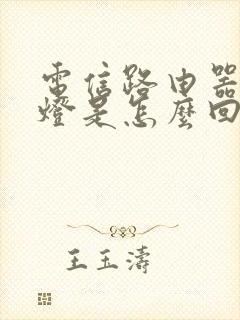 電信路由器
燈是怎麼回
王玉濤